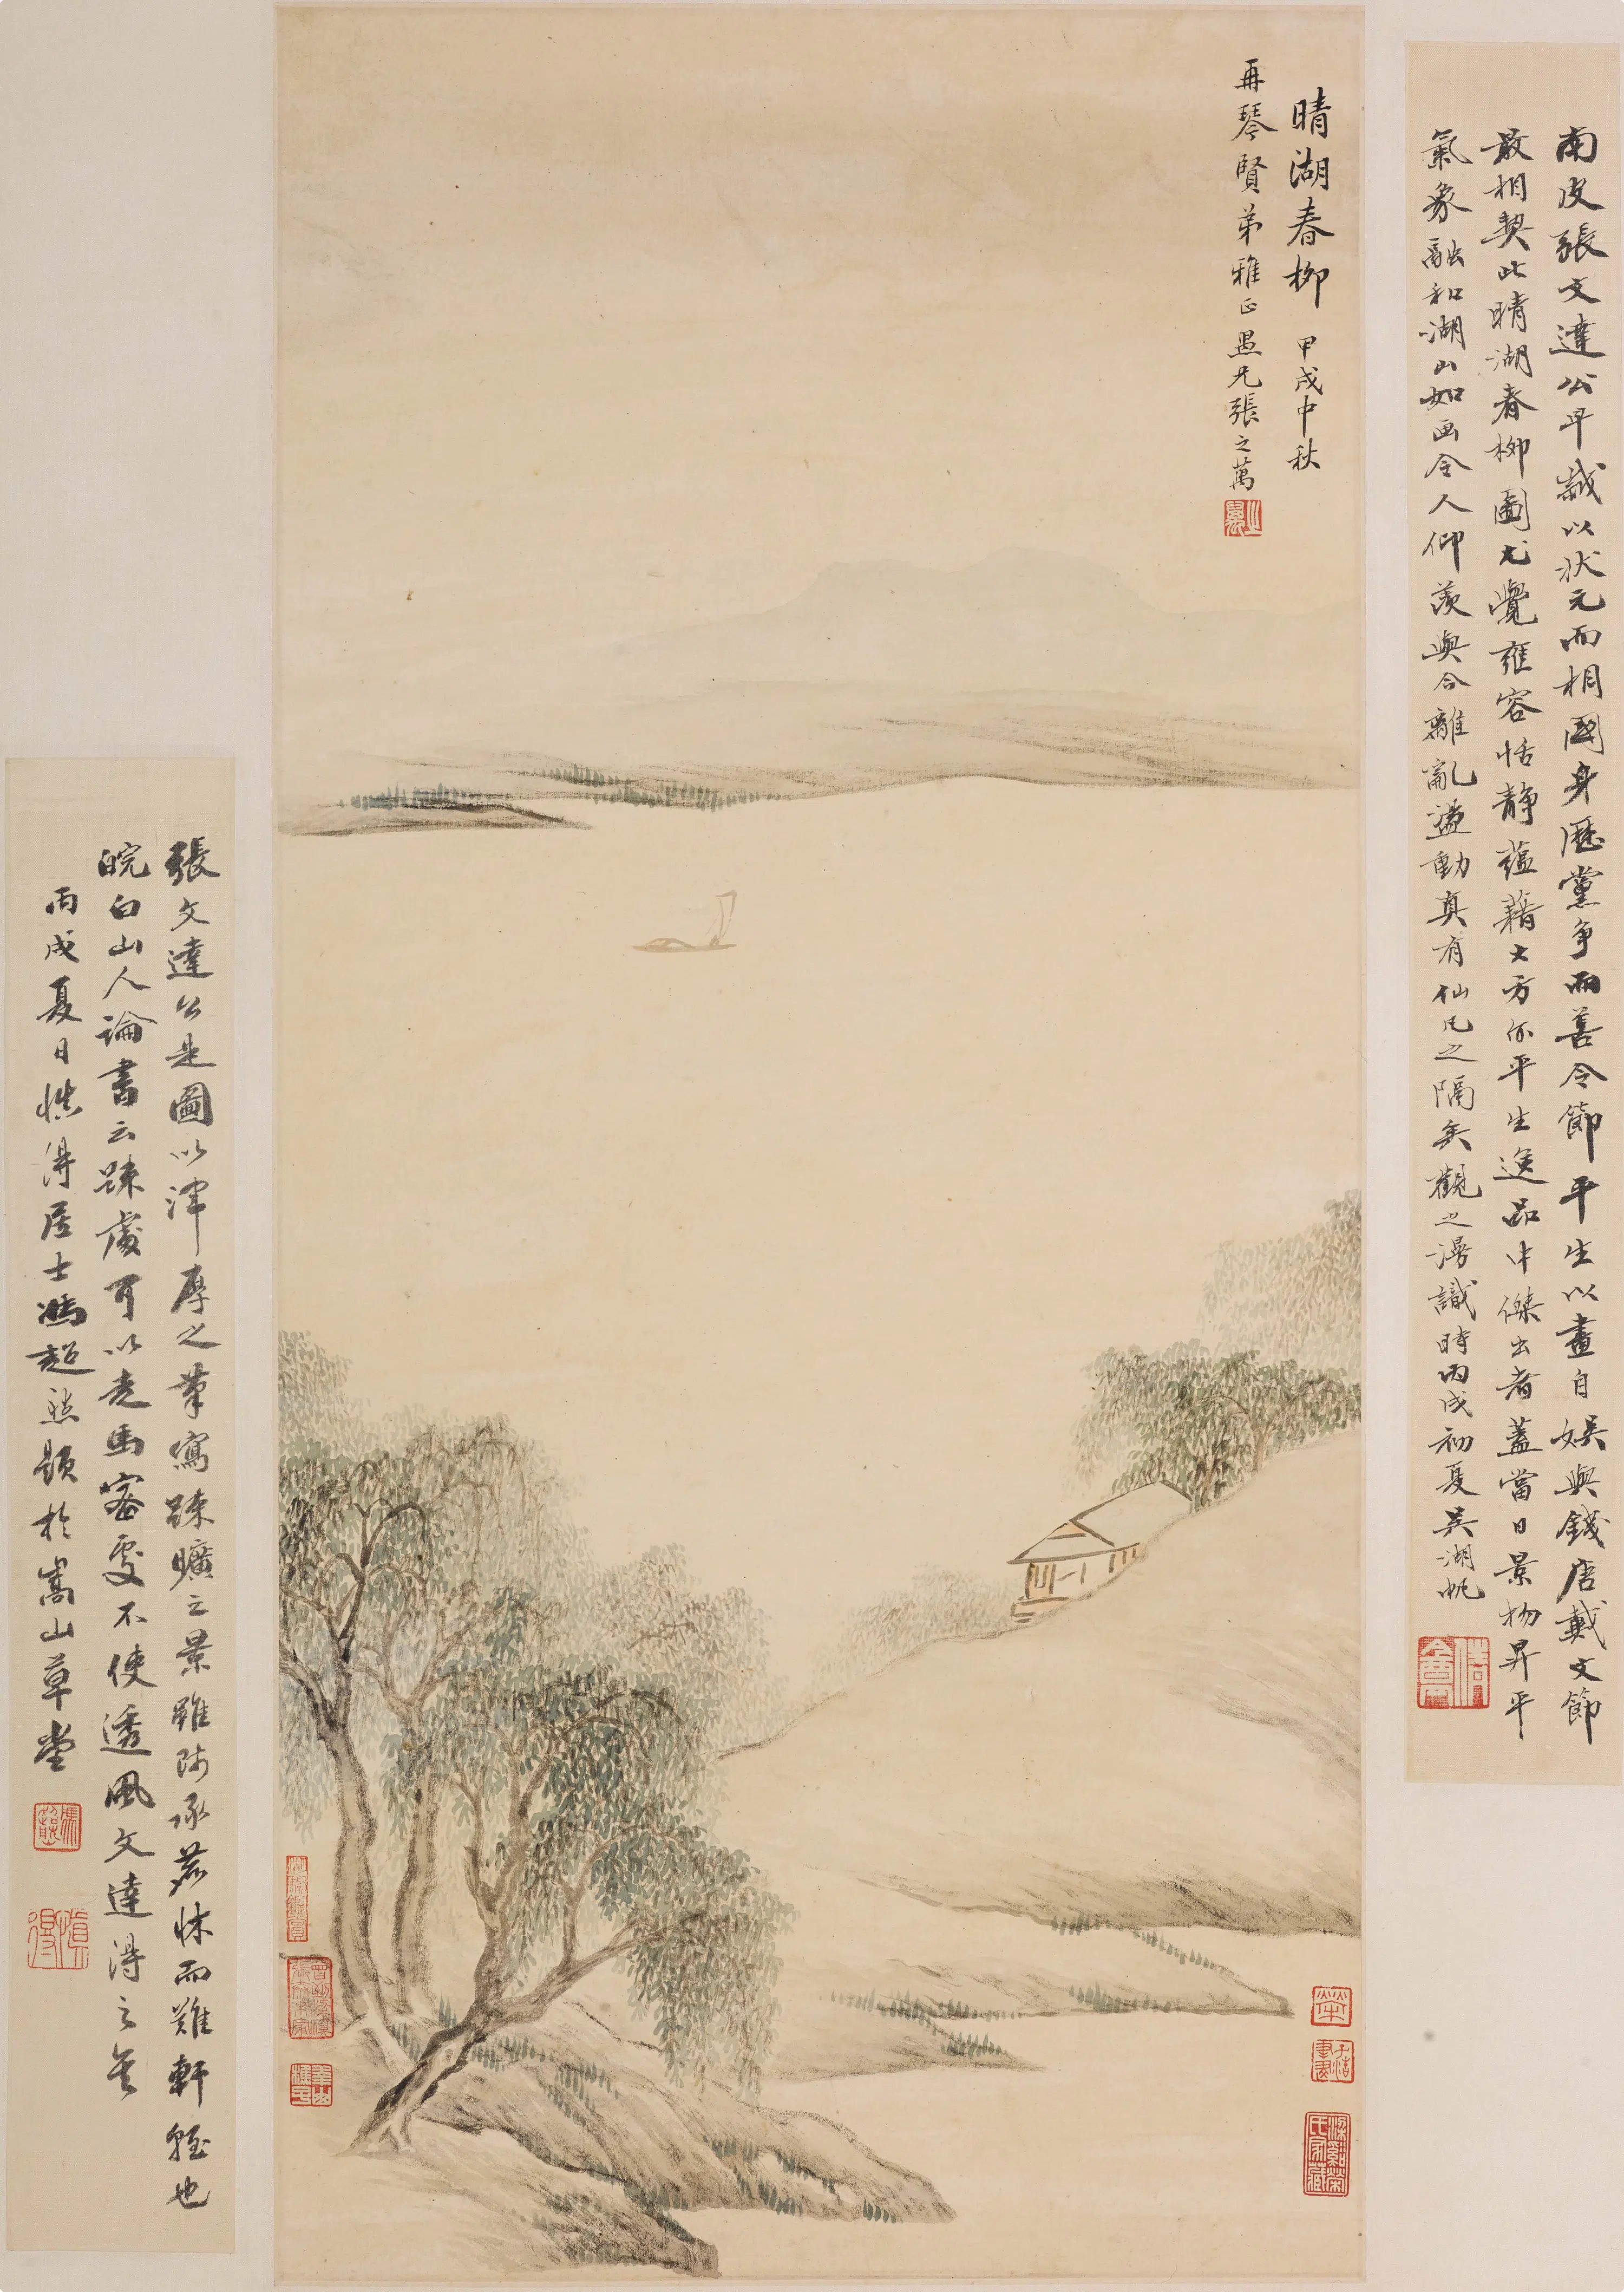 晴湖春柳 甲戌中秋
再琴賢弟雅正愚兄張之萬
之萬
南皮張文達公早歲以狀元而相國身歷黨爭而善令節平生以畫自娛與錢唐戴文節
最相契此晴湖春柳圖尤覺雍容恬静蕴藉大方尔平生逸品中傑出者蓋當日景物昇平
氣象融和湖山如画令人仰羨與今離亂盪動真有仙凡之隔矣觀之漫識時丙戌初夏吳湖帆
倩盦
張文達公是圖以渾厚之筆寫疎曠之景雖師承而難軒輊也
皖白山人論書云疎處可以走馬密處不使透風文達得之矣
丙戌夏日慎得居士馮超然題於嵩山草堂
馮超然
慎得
梁谿榮氏家藏